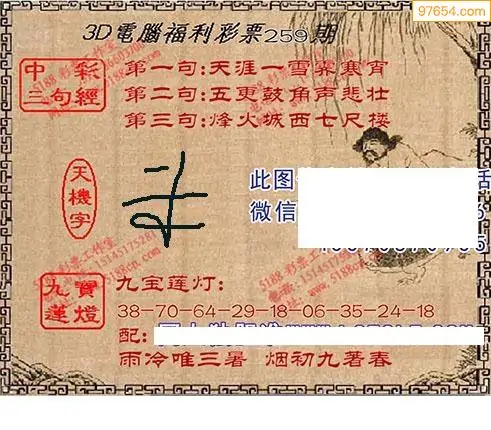 97654.com
3D電腦福利彩票259期
中彩三句經
第一句:天涯一雪霁寒宵
第二句:五更鼓角声悲壮
第三句:烽火城西七尺楼
天機字
此图
话
微信
九寶蓮燈
九宝莲灯:
38-70-64-29-18-06-35-24-18
配:
雨冷唯三暑 烟初九著春
5188 彩票工作室
15145175281
www.5188cn.com